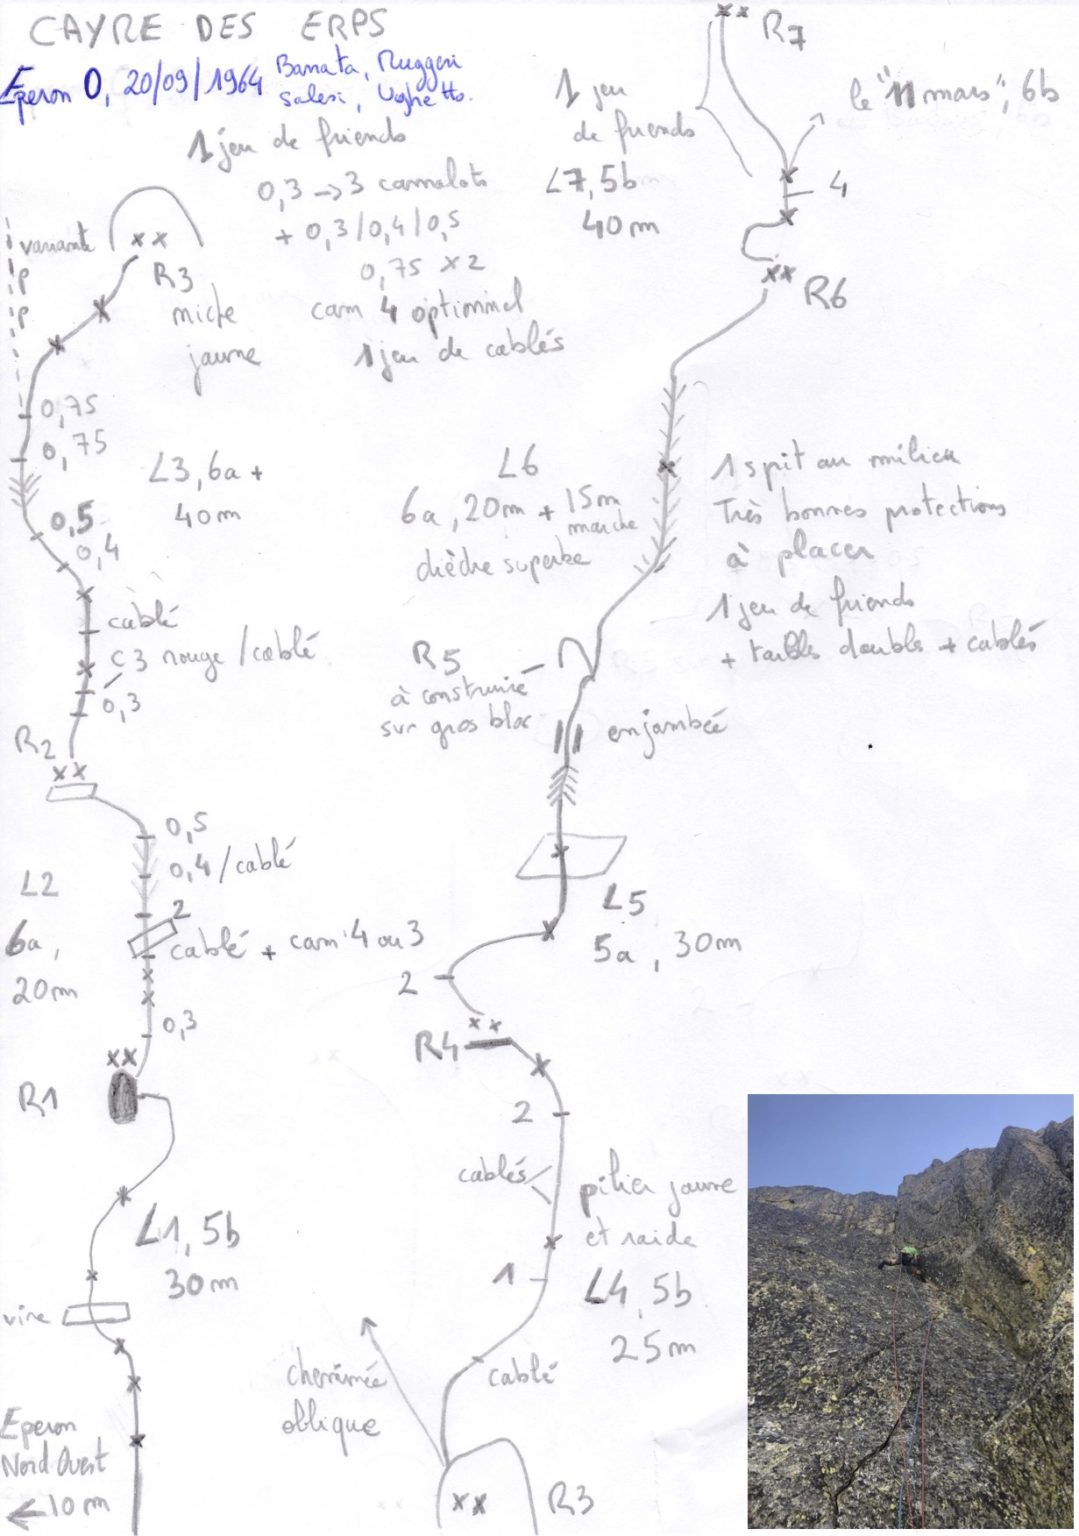 CAYRE DES ERPS
Eperon O, 20/09/1964 Banata, Ruggeri
Salesi, Ughetto.
1 jeu de friends
0,3 → 3 camalots
+ 0,3/0,4/0,5
0,75 x2
cam 4 optionnel
1 jeu de cablés
variante
P
P
R3
niche
jaune
0,75
0,75
L3, 6a+
40m
0,5
0,4
cablé
C3 rouge/cablé
0,3
R2
0,5
0,4/cablé
L2
6a,
20m
2
cablé + cam 4 ou 3
0,3
R1
L1, 5b
30m
vire
Eperon
Nord Ouest
← 10m
R7
le "11 mars", 6b
1 jeu
de friends
L7, 5b
40m
4
R6
L6
6a, 20m + 15m
marche
dièdre superbe
1 spit au milieu
Très bonnes protections
à placer
1 jeu de friends
+ tailles doubles + cablés
R5
à construire
sur gros bloc
enjambée
L5
5a, 30m
2
R4
2
cablés
pilier jaune
et raide
1
L4, 5b
25m
cablé
cheminée
oblique
R3